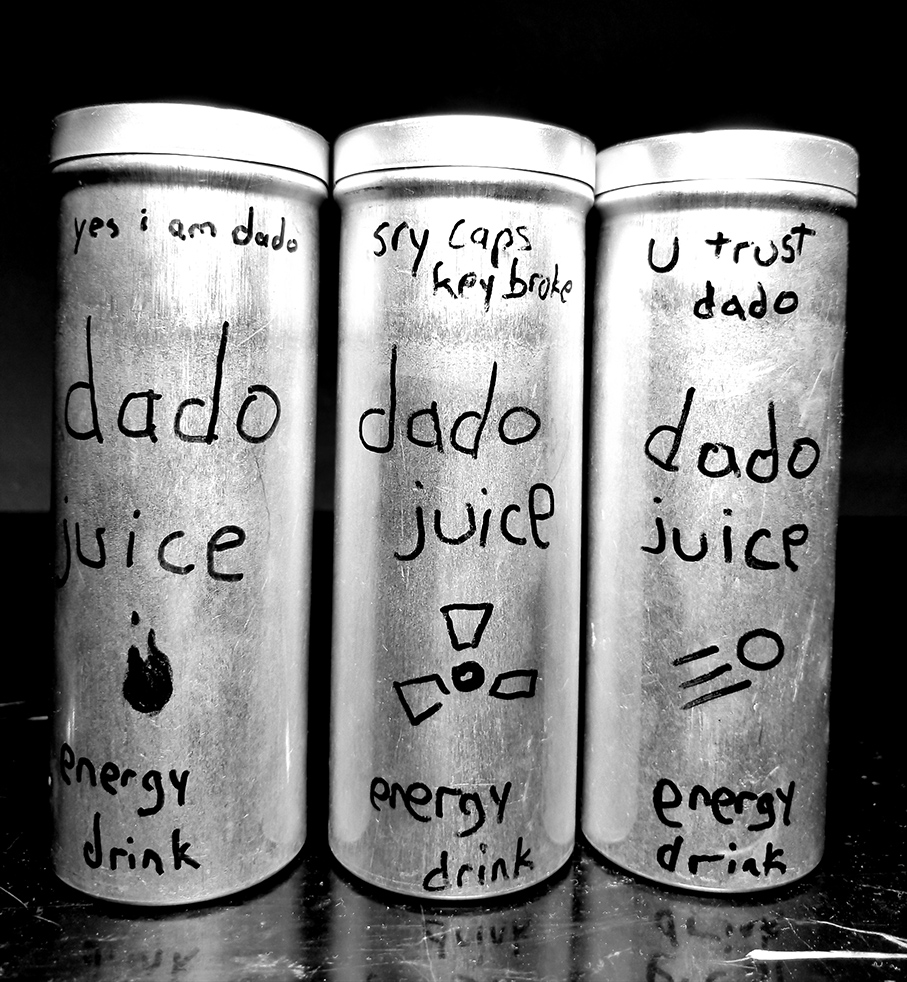 yes i am dado
dado
juice
energy
drink
sry caps
key broke
dado
juice
energy
drink
u trust
dado
dado
juice
energy
drink